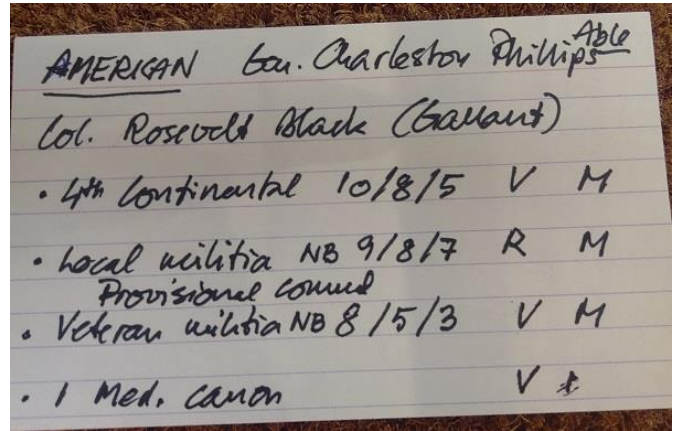 AMERICAN Gen. Charleston Phillips Able
Col. Rosevelt Black (Gallant)
• 4th Continental 10/8/5 V M
• Local militia NB 9/8/7 R M
Provisional comnd
• Veteran militia NB 8/5/3 V M
• 1 Med. canon V